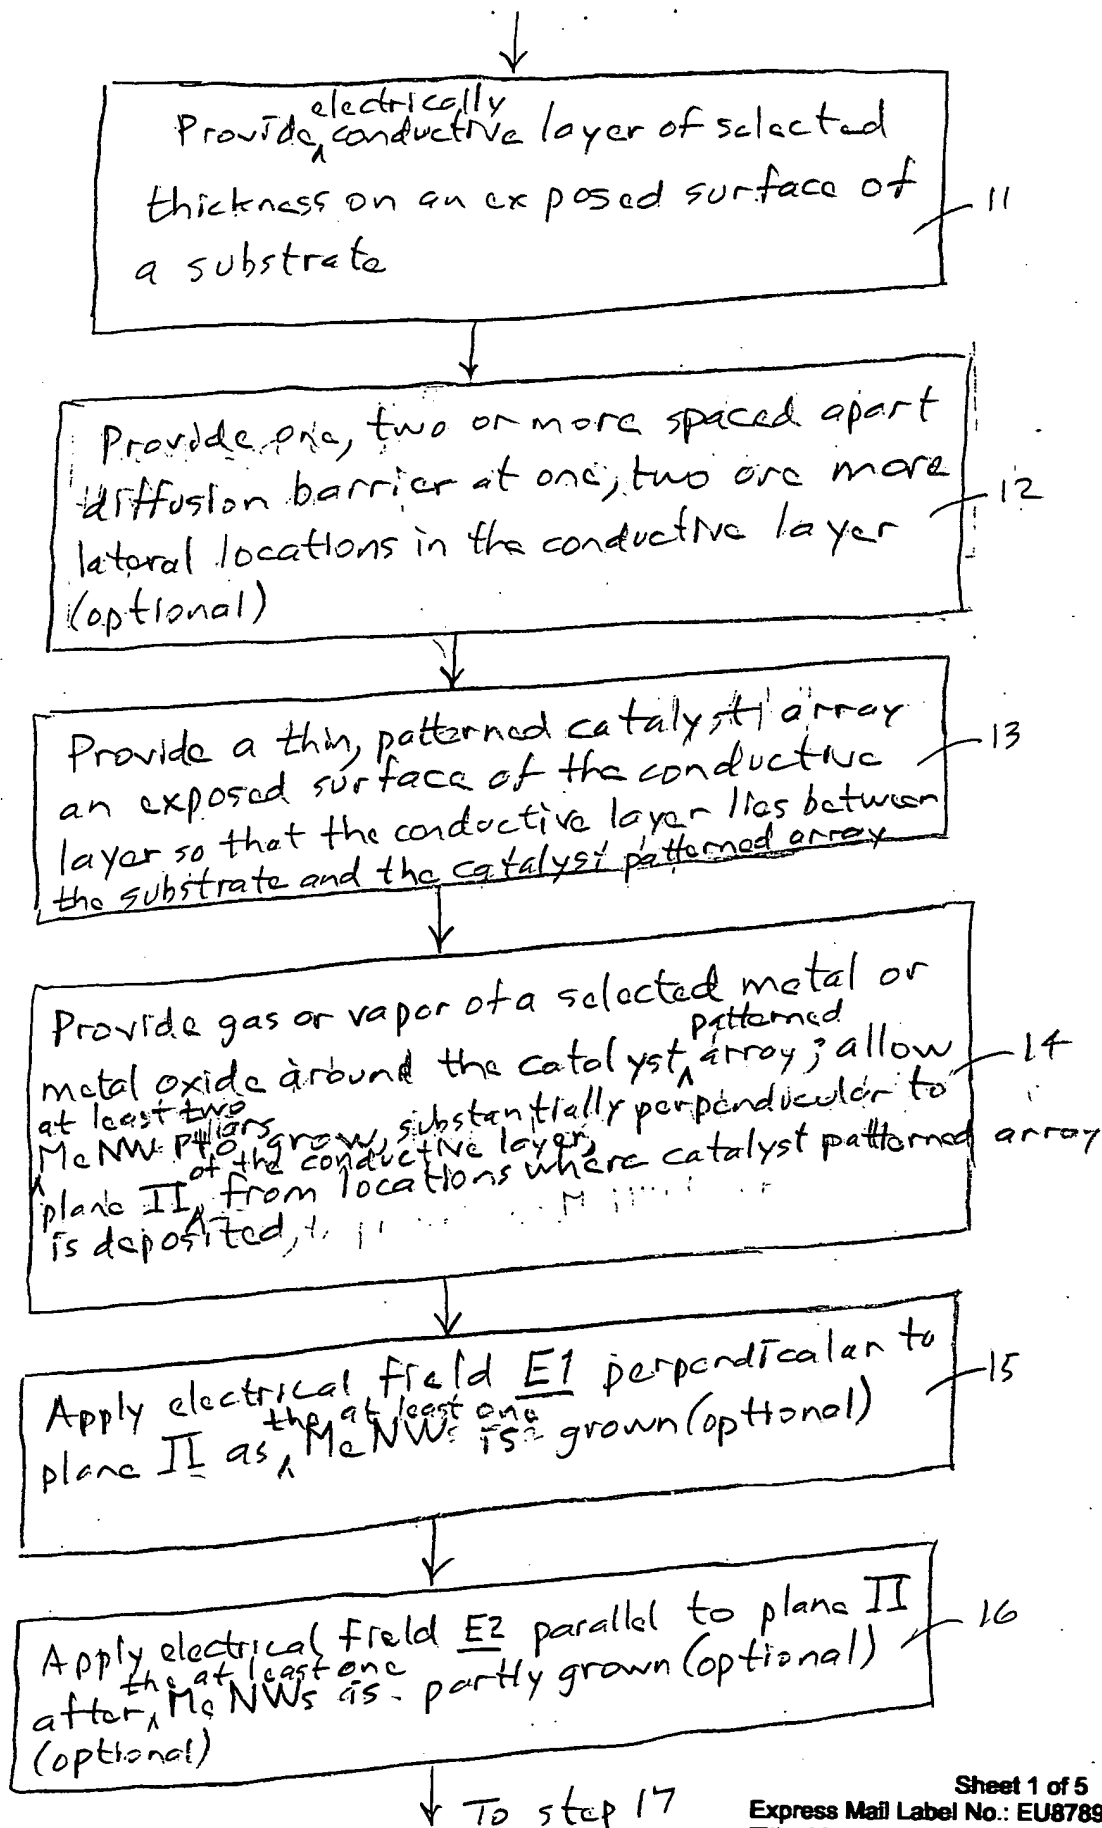 electrically
Provide ^ conductive layer of selected
thickness on an exposed surface of
a substrate
11
Provide one, two or more spaced apart
diffusion barrier at one, two ore more
lateral locations in the conductive layer
(optional)
12
Provide a thin, patterned catalyst array
an exposed surface of the conductive
layer so that the conductive layer lies between
the substrate and the catalyst patterned array
13
Provide gas or vapor of a selected metal or
patterned
metal oxide around the catalyst ^ array; allow
at least two
^ MeNW pillars grow, substantially perpendicular to
of the conductive layer,
plane II ^ from locations where catalyst patterned array
is deposited,
14
Apply electrical field E1 perpendicalar to
the at least one
plane II as ^ MeNWs is grown (optional)
15
Apply electrical field E2 parallel to plane II
the at least one
after ^ MeNWs is partly grown (optional)
(optional)
16
To step 17
Sheet 1 of 5
Express Mail Label No.: EU8789